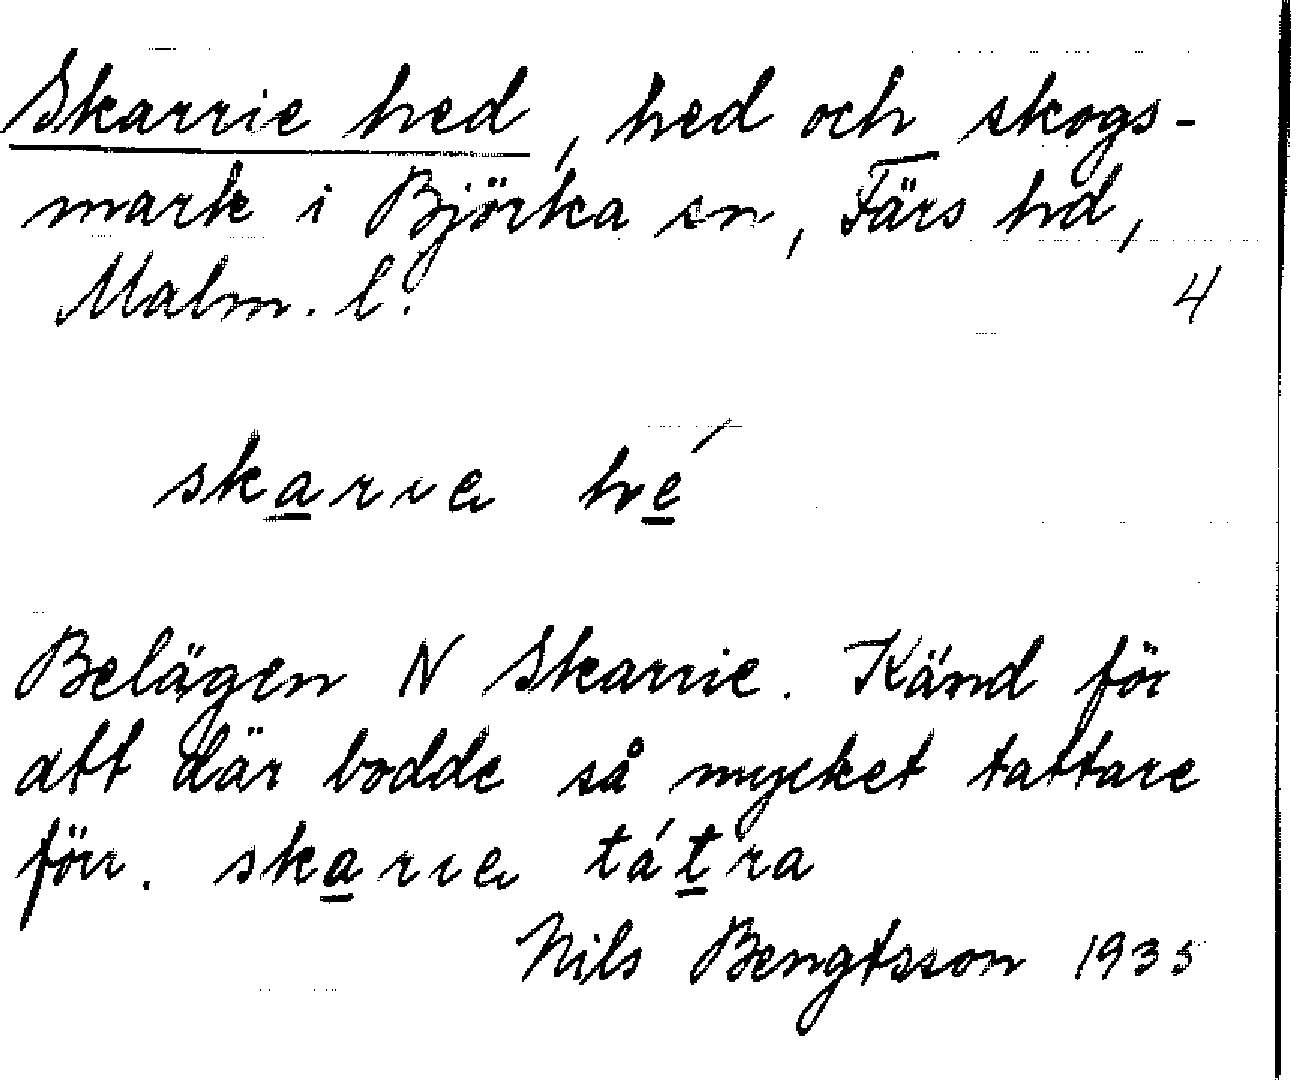 Skarrie hed, hed och skogs-
mark i Björka sn, Färs hd,
Malm. l. 4
skarıe hé
Belägen N Skarrie. Känd för
att där bodde så mycket tattare
förr. skarıe tátra
Nils Bengtsson 1935